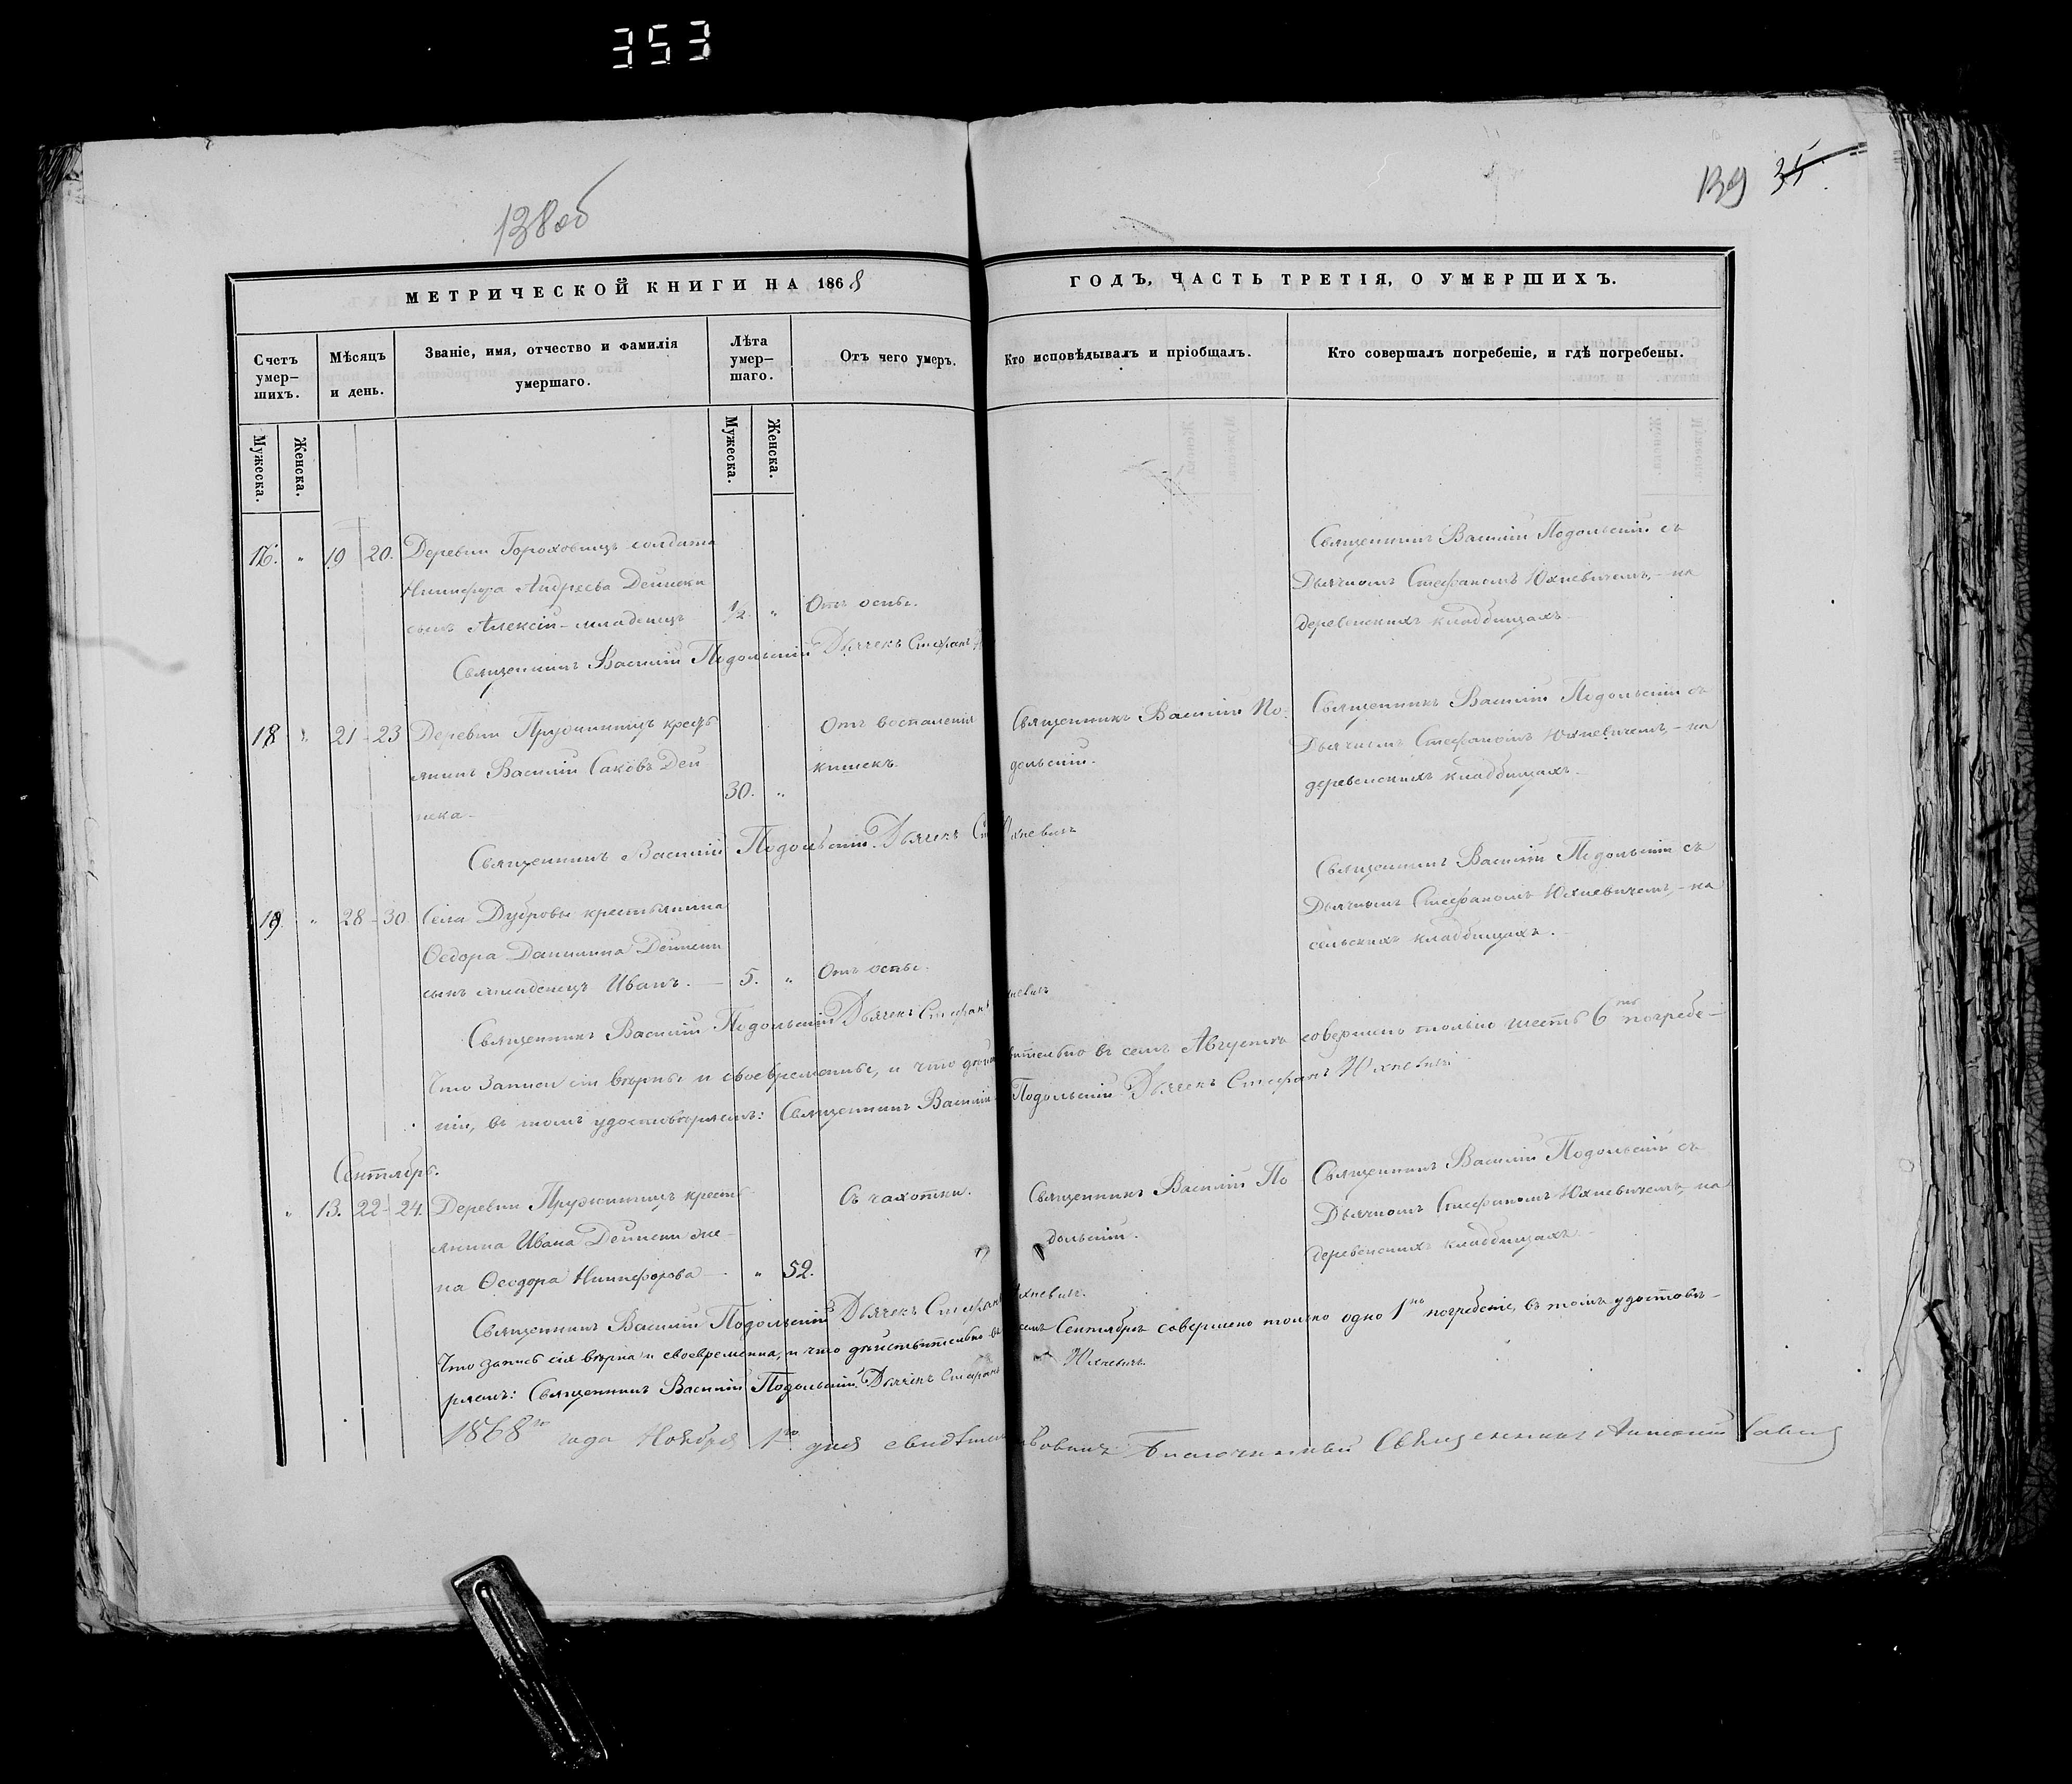 353
138об
139 35
МЕТРИЧЕСКОЙ КНИГИ НА 1868
ГОДЪ, ЧАСТЬ ТРЕТІЯ, О УМЕРШИХЪ.
Счетъ умер-
шихъ.
Мѣсяцъ
и день.
Званіе, имя, отчество и фамилія
умершаго.
Лѣта
умер-
шаго.
Отъ чего умеръ.
Кто исповѣдывалъ и пріобщалъ.
Кто совершалъ погребеніе, и гдѣ погребены.
Мужеска.
Женска.
Мужеска.
Женска.
16. " 19 20. Деревни Гороховищъ солдата
Никифора Андреева Дейнеки
сынъ Алексій - младенецъ 1/2. " Отъ оспы.
Священникъ Василій Подольскій съ
Дьячкомъ Стефаномъ Юхневичемъ, - на
деревенскихъ кладбищахъ.
Священникъ Василій Подольскій Дьячекъ Стефанъ
18 " 21 - 23 Деревни Прудчинищъ кресть
янинъ Василій Саковъ Дей
нека. 30. "
Отъ воспаленія
кишекъ.
Священникъ Василій По-
дольскій.
Священникъ Василій Подольскій съ
Дьячкомъ Стефаномъ Юхневичемъ, - на
деревенскихъ кладбищахъ.
Священникъ Василій Подольскій. Дьячекъ Юхневичъ
19. " 28 - 30 Села Дубровы крестьянина
Ѳедора Даниилова Дейнеки
сынъ младенецъ Иванъ. - 5. " Отъ оспы.
Священникъ Василій Подольскій съ
Дьячкомъ Стефаномъ Юхневичемъ, - на
сельскихъ кладбищахъ.
Священникъ Василій Подольскій Дьячекъ Стефанъ Юхневичъ
Что записи сіи вѣрны и своевременны, и что дѣйствительно въ семъ Августѣ совершено только шесть 6ть погребе-
ній, въ томъ удостовѣряемъ: Священникъ Василій Подольскій Дьячекъ Стефанъ Юхневичъ
Сентябрь.
" 13. 22 - 24. Деревни Прудчинищъ кресть
янина Ивана Дейнеки же-
на Ѳеодора Никифорова - " 52.
Съ чахотки.
Священникъ Василій По
дольскій.
Священникъ Василій Подольскій съ
Дьячкомъ Стефаномъ Юхневичемъ, на
деревенскихъ кладбищахъ.
Священникъ Василій Подольскій Дьячекъ Стефанъ Юхневичъ.
Что запись сія вѣрна и своевременна, и что дѣйствительно въ семъ Сентябрѣ совершено только одно 1но погребеніе, въ томъ удостовѣ-
ряемъ: Священникъ Василій Подольскій. Дьячекъ Стефанъ Юхневичъ
1868го года Ноября 1го дня свидѣтельствовалъ Благочинный Священникъ Антоній